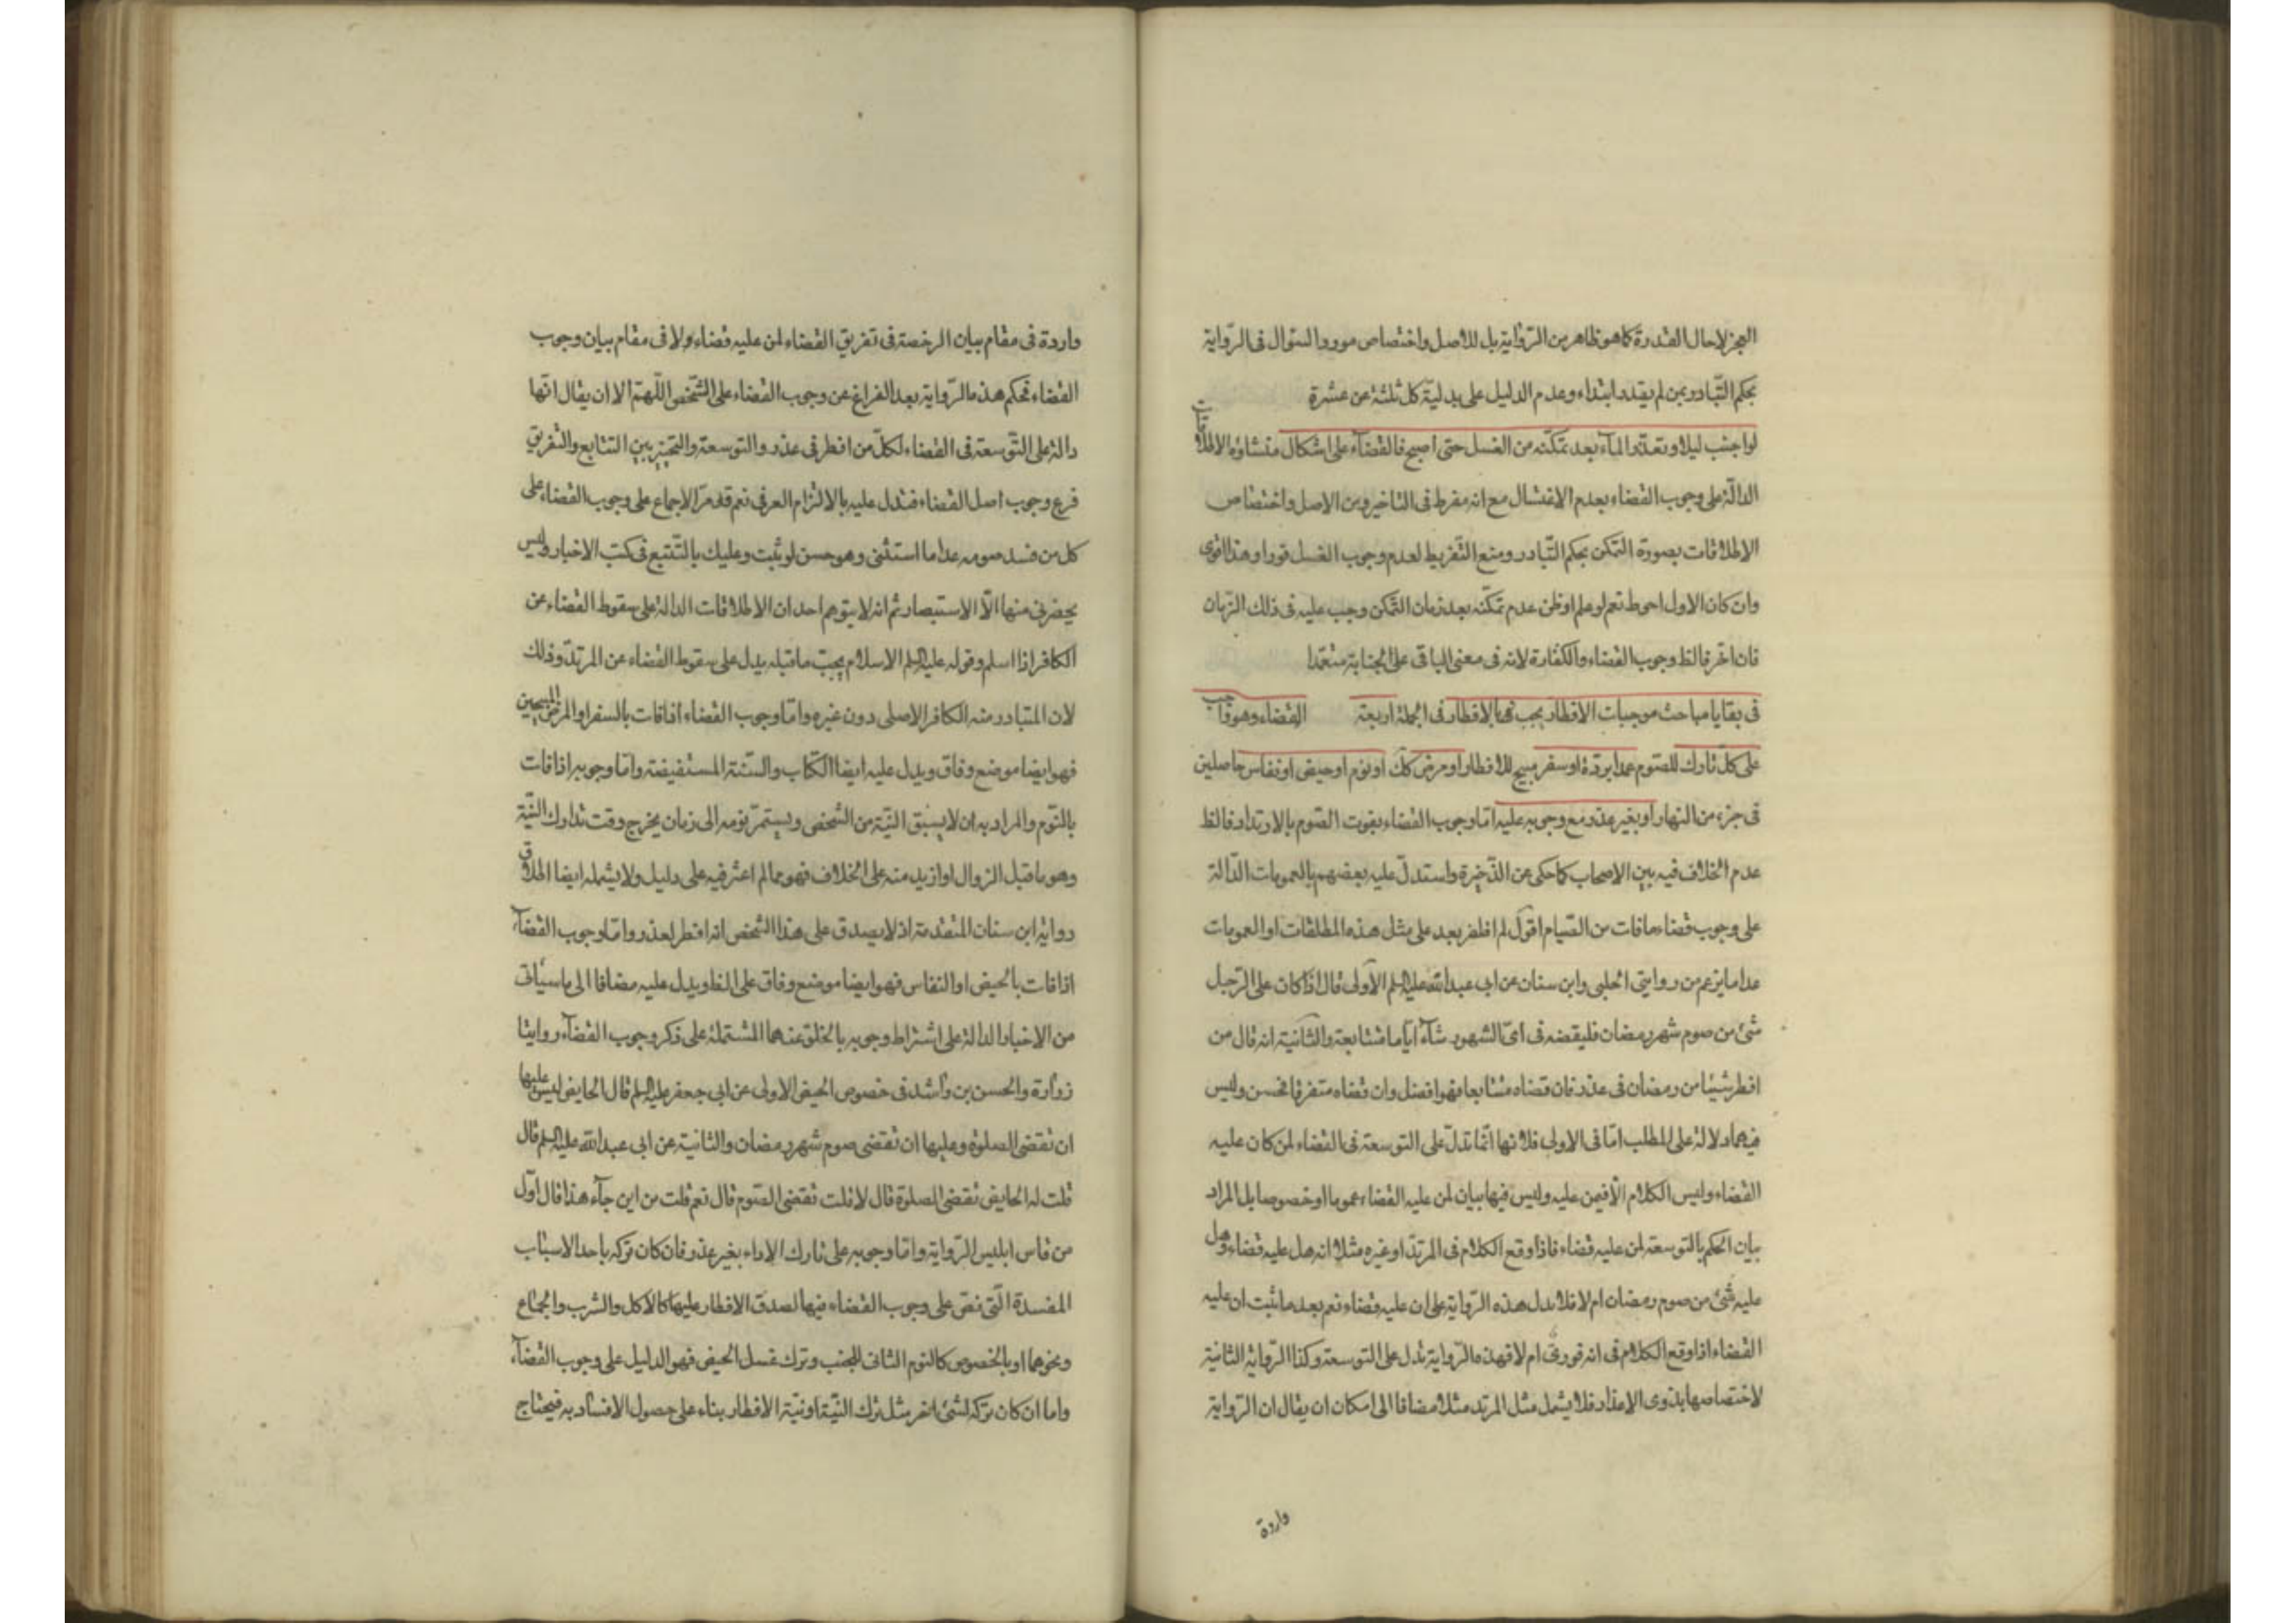 العجز لا حال القدرة كما هو ظاهر من الرّواية بل للاصل واختصاص مورد السّؤال فى الرّواية
بحكم التّبادر بمن لم يقدر ابتداء وعدم الدليل على بدليّة كل ثلثة عن عشرة
لو اجنب ليلا وتعذّر المآء بعد تمكّنه من الغسل حتى اصبح فالقضآء على اشكال منشاؤه الاطلاقات
الدالّة على وجوب القضاء بعدم الاغتسال مع انه مفرط فى التاخير ومن الاصل واختصاص
الاطلاقات بصورة التمكن بحكم التّبادر ومنع التّفريط لعدم وجوب الغسل فورا وهذا اقوى
وان كان الاول احوط نعم لو علم او ظن عدم تمكّنه بعد زمان التمكن وجب عليه فى ذلك الزمان
فان اخّر فالظ وجوب القضاء والكفارة لانه فى معنى الباقى على الجنابة متعمّدا
فى بقايا مباحث موجبات الافطار يجب بالافطار فى الجملة اربعة القضاء وهو واجب
على كلّ تارك للصّوم عمدا بردّة او سفر مبيح للافطار او مرض كك او نوم او حيض او نفاس حاصلين
فى جزء من النهار او بغير عذر مع وجوبه عليه امّا وجوب القضاء بفوت الصّوم بالارتداد فالظ
عدم الخلاف فيه بين الاصحاب كما حكى عن الذّخيرة واستدلّ عليه بعضهم بالعمومات الدّالة
على وجوب قضاء ما فات من الصّيام اقول لم اظفر بعد على مثل هذه المطلقات او العمومات
عدا ما يزعم من روايتى الحلبى وابن سنان عن ابى عبد الله عليه السلم الاولى قال اذا كان على الرّجل
شئ من صوم شهر رمضان فليقضه فى اىّ الشهور شآء ايّاما متتابعة والثّانية انه قال من
افطر شيئا من رمضان فى عذر فان قضاه متتابعا فهو افضل وان قضاه متفرقا فحسن وليس
فيهما دلالة على المطلب امّا فى الاولى فلانها انّما تدلّ على التوسعة فى القضاء لمن كان عليه
القضاء وليس الكلام الّا فيمن عليه وليس فيها بيان لمن عليه القضاء عموما او خصوصا بل المراد
بيان الحكم بالتوسعة لمن عليه قضاء فاذا وقع الكلام فى المرتدّ او غيره مثلا انه هل عليه قضاء وهل
عليه شئ من صوم رمضان ام لا فلا يدل هذه الرّواية على ان عليه قضاء نعم بعد ما ثبت ان عليه
القضاء اذا وقع الكلام فى انه فورىّ ام لا فهذه الرّواية تدل على التوسعة وكذا الرّواية الثانية
لاختصاصها بذوى الاعذار فلا يشمل مثل المرتد مثلا مضافا الى امكان ان يقال ان الرّواية
واردة
واردة فى مقام بيان الرخصة فى تفريق القضاء لمن عليه قضاء ولا فى مقام بيان وجوب
القضاء فحكم هذه الرّواية بعد الفراغ عن وجوب القضاء على الشّخص اللّهمّ الا ان يقال انّها
دالة على التّوسعة فى القضاء لكلّ من افطر فى عذر والتوسعة والتخيير بين التتابع والتفريق
فرع وجوب اصل القضاء فتدل عليه بالالتزام العرفى نعم قد مرّ الاجماع على وجوب القضاء على
كل من فسد صومه عدا ما استثنى وهو حسن لو ثبت وعليك بالتّتبع فى كتب الاخبار وليس
يحضرنى منها الّا الاستبصار ثم انه لا يتوهم احد ان الاطلاقات الدالة على سقوط القضاء عن
الكافر اذا اسلم وقوله عليه السلم الاسلام يجبّ ما قبله يدل على سقوط القضاء عن المرتدّ وذلك
لان المتبادر منه الكافر الاصلى دون غيره وامّا وجوب القضاء اذا فات بالسفر او المرض المبيحين
فهو ايضا موضع وفاق ويدل عليه ايضا الكتاب والسّنة المستفيضة وامّا وجوبه اذا فات
بالنّوم والمراد به ان لا يسبق النيّة من الشخص ويستمرّ نومه الى زمان يخرج وقت تدارك النّيّة
وهو ما قبل الزوال او ازيد منه على الخلاف فهو مما لم اعثر فيه على دليل ولا يشمله ايضا اطلاق
رواية ابن سنان المتقدمة اذ لا يصدق على هذا الشخص انه افطر لعذر وامّا وجوب القضآء
اذا فات بالحيض او النفاس فهو ايضا موضع وفاق على الظ ويدل عليه مضافا الى ما سيأتى
من الاخبار الدالة على اشتراط وجوبه بالخلو عنهما المشتملة على ذكر وجوب القضآء روايتا
زرارة والحسن بن راشد فى خصوص الحيض الاولى عن ابى جعفر عليه السلم قال الحايض ليس عليها
ان تقضى الصلوة وعليها ان تقضى صوم شهر رمضان والثانية عن ابى عبد الله عليه السلم قال
قلت له الحايض تقضى الصلوة قال لا قلت تقضى الصّوم قال نعم قلت من اين جآء هذا قال اوّل
من قاس ابليس الرّواية وامّا وجوبه على تارك الاداء بغير عذر فان كان تركه باحد الاسباب
المفسدة الّتى نصّ على وجوب القضاء فيها لصدق الافطار عليها كالاكل والشرب والجماع
ونحوهما او بالخصوص كالنوم الثانى للجنب وترك غسل الحيض فهو الدليل على وجوب القضآء
واما ان كان تركه لشئ اخر مثل ترك النّية او نيّة الافطار بناء على حصول الافساد به فيحتاج